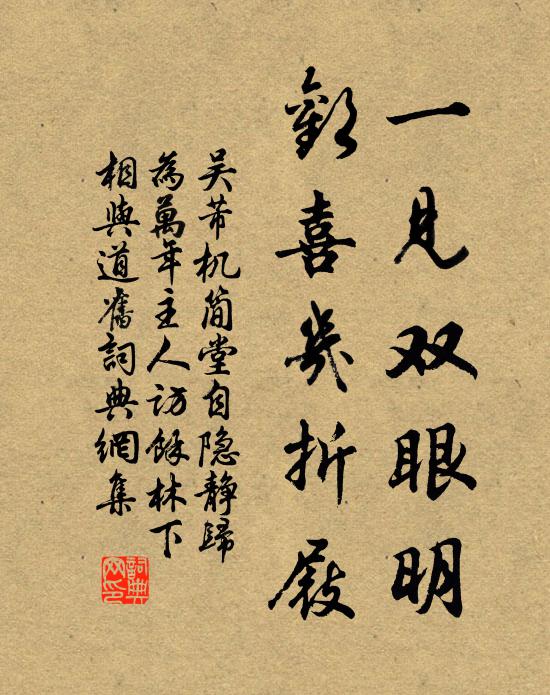 一见双眼明
歡喜幾折屐
吴芾机简堂自隐静歸
為萬年主人访馀林下
相與道舊詞典網集
詞典网印